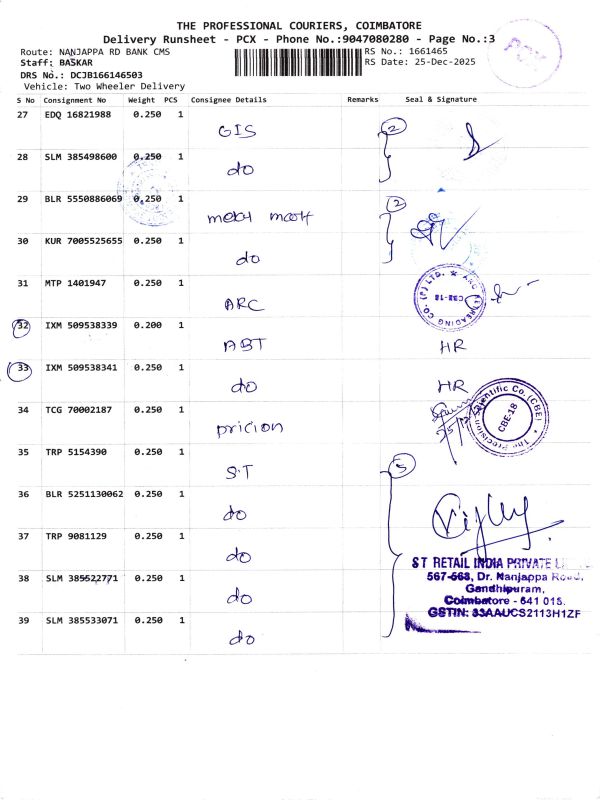 THE PROFESSIONAL COURIERS, COIMBATORE
Delivery Runsheet - PCX - Phone No.:9047080280 - Page No.:3
PCX
Route: NANJAPPA RD BANK CMS
RS No.: 1661465
Staff: BASKAR
RS Date: 25-Dec-2025
DRS No.: DCJB166146503
Vehicle: Two Wheeler Delivery
S No Consignment No Weight PCS Consignee Details Remarks Seal & Signature
27 EDQ 16821988 0.250 1 GIS 2
28 SLM 385498600 0.250 1 do
29 BLR 5550886069 0.250 1 2
30 KUR 7005525655 0.250 1 do
31 MTP 1401947 0.250 1 ARC
ARC RETREADING CO. (P) LTD. ★ CBE-18
32 IXM 509538339 0.200 1 ABT HR
33 IXM 509538341 0.250 1 do HR
34 TCG 70002187 0.250 1 pricion
The Precision Scientific Co. (CBE) ★ CBE-18
35 TRP 5154390 0.250 1 S.T 5
36 BLR 5251130062 0.250 1 do
37 TRP 9081129 0.250 1 do
38 SLM 385522771 0.250 1 do
39 SLM 385533071 0.250 1 do
ST RETAIL INDIA PRIVATE
567-568, Dr. Nanjappa Road,
Gandhipuram,
Coimbatore - 641 018.
GSTIN: 33AAUCS2113H1ZF